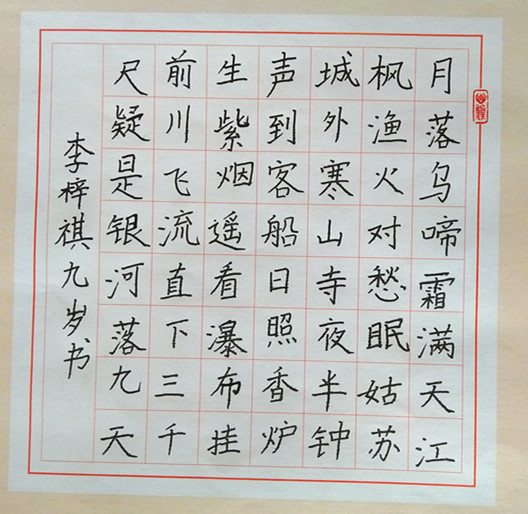 月落乌啼霜满天江
枫渔火对愁眠姑苏
城外寒山寺夜半钟
声到客船日照香炉
生紫烟遥看瀑布挂
前川飞流直下三千
尺疑是银河落九天
李梓祺九岁书